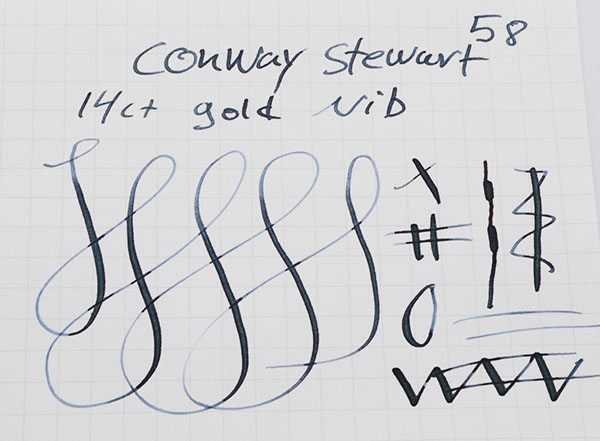 Conway Stewart 58
14ct gold nib